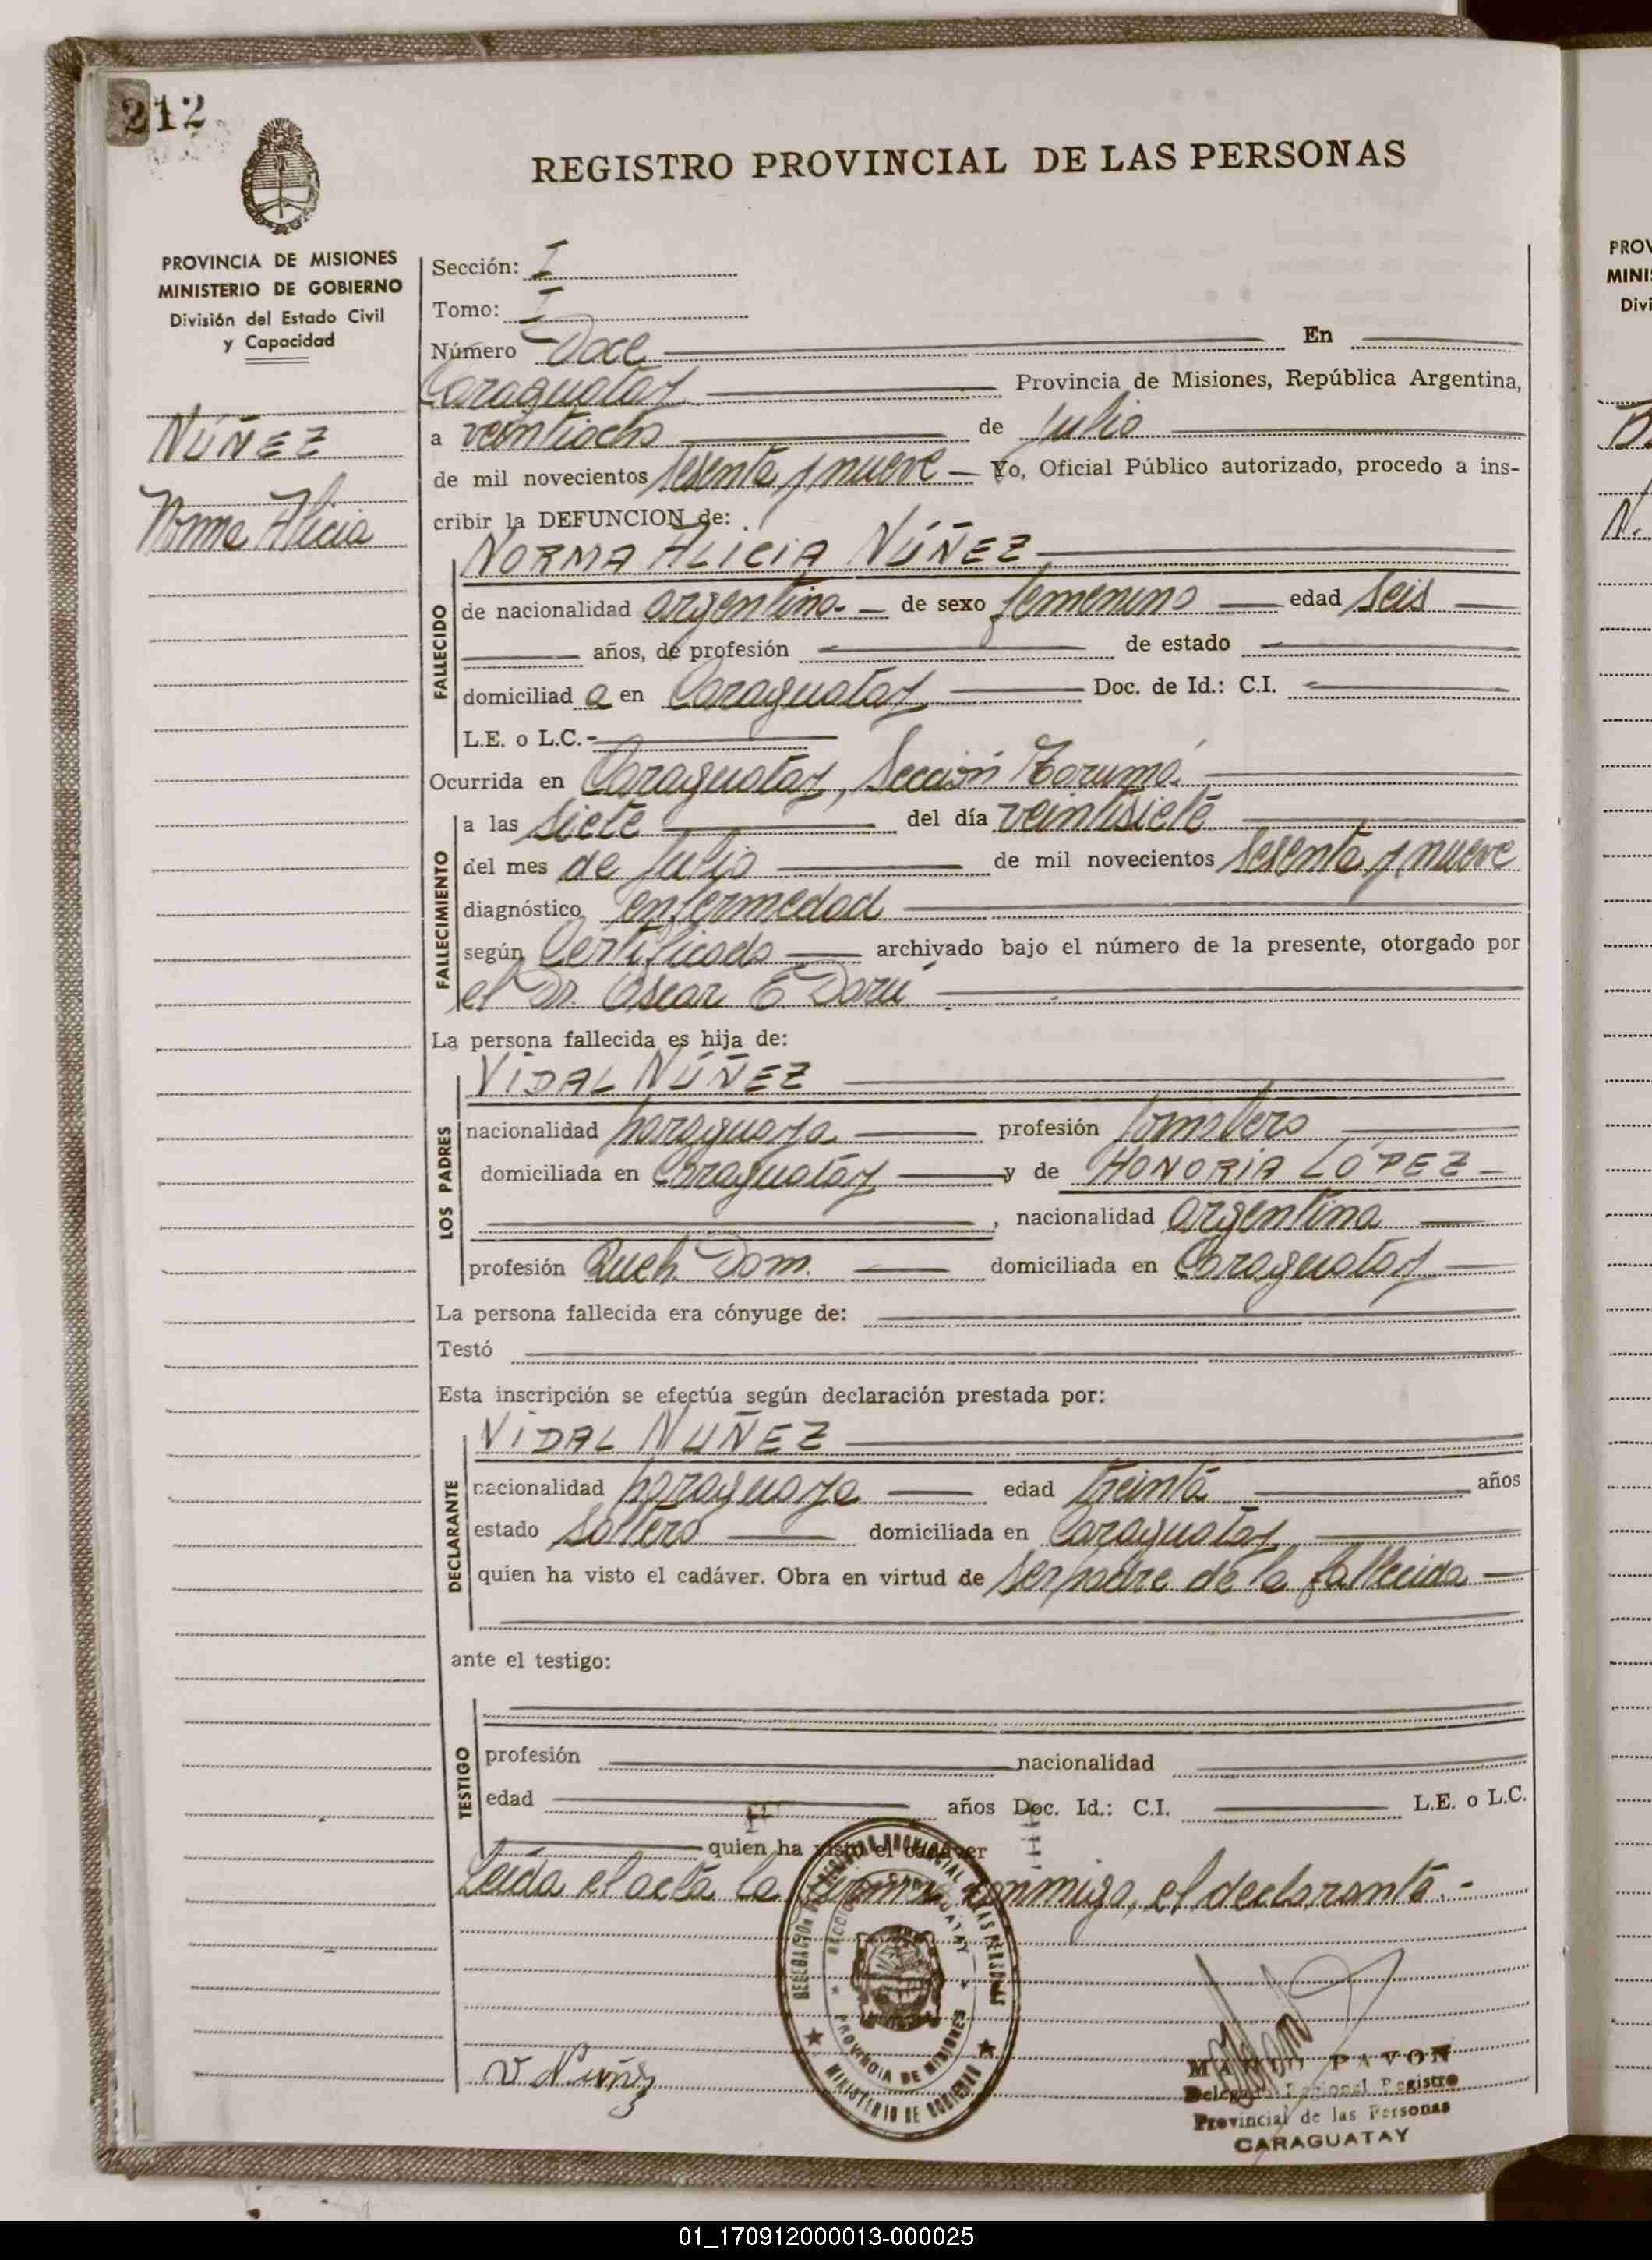 212
REGISTRO PROVINCIAL DE LAS PERSONAS
PROVINCIA DE MISIONES
MINISTERIO DE GOBIERNO
División del Estado Civil
y Capacidad
NÚÑEZ
Norma Alicia
Sección: I
Tomo: I
Número Doce En
Caraguatay Provincia de Misiones, República Argentina,
a veintiocho de Julio
de mil novecientos sesenta y nueve Yo, Oficial Público autorizado, procedo a ins-
cribir la DEFUNCION de:
NORMA ALICIA NÚÑEZ
FALLECIDO
de nacionalidad argentina de sexo femenino edad seis
años, de profesión de estado
domiciliad a en Caraguatay Doc. de Id.: C.I.
L.E. o L.C.
Ocurrida en Caraguatay, Sección Tarumá
FALLECIMIENTO
a las siete del día veintisiete
del mes de Julio de mil novecientos sesenta y nueve
diagnóstico enfermedad
según Certificado archivado bajo el número de la presente, otorgado por
el Dr. Oscar E Darú
La persona fallecida es hija de:
VIDAL NÚÑEZ
LOS PADRES
nacionalidad paraguaya profesión
domiciliada en Caraguatay y de HONORIA LÓPEZ
, nacionalidad argentina
profesión Queh. Dom. domiciliada en Caraguatay
La persona fallecida era cónyuge de:
Testó
Esta inscripción se efectúa según declaración prestada por:
VIDAL NUÑEZ
DECLARANTE
nacionalidad paraguaya edad treinta años
estado soltero domiciliada en Caraguatay
quien ha visto el cadáver. Obra en virtud de ser padre de la fallecida
ante el testigo:
TESTIGO
profesión nacionalidad
edad años Doc. Id.: C.I. L.E. o L.C.
quien ha visto el cadáver
Leída el acta la firman conmigo, el declarante.-
DELEGACION DEL REGISTRO PROVINCIAL DE LAS PERSONAS
SECCION CARAGUATAY
PROVINCIA DE MISIONES
MINISTERIO DE GOBIERNO
V Nuñez
PAVON
Delegado Registro
Provincial de las Personas
CARAGUATAY
PROV
MINI
Divi
N.
01_170912000013-000025